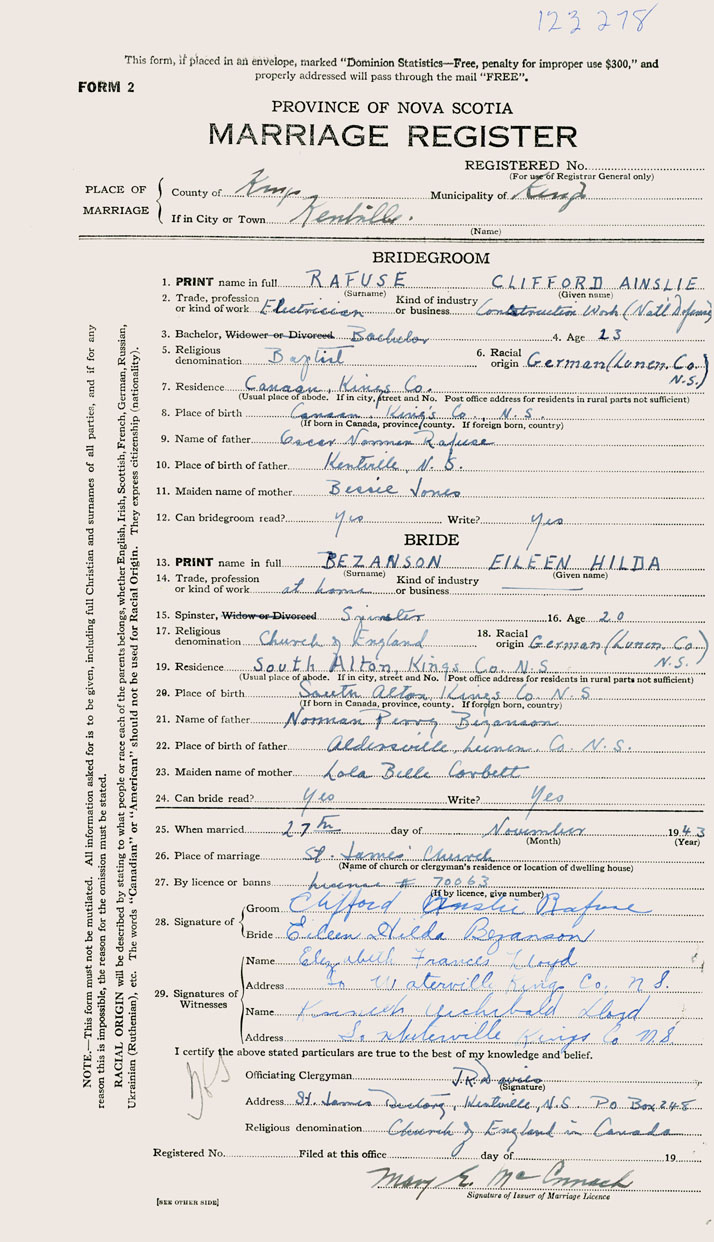 123 278
This form, if placed in an envelope, marked "Dominion Statistics—Free, penalty for improper use $300," and
properly addressed will pass through the mail "FREE".
FORM 2
PROVINCE OF NOVA SCOTIA
MARRIAGE REGISTER
REGISTERED No.
(For use of Registrar General only)
PLACE OF MARRIAGE
County of Kings Municipality of Kings
If in City or Town Kentville.
(Name)
BRIDEGROOM
1. PRINT name in full RAFUSE CLIFFORD AINSLIE
(Surname) (Given name)
2. Trade, profession or kind of work Electrician Kind of industry or business Construction Work (Nat'l Defense)
3. Bachelor, Widower or Divorced Bachelor 4. Age 23
5. Religious denomination Baptist 6. Racial origin German (Lunen. Co. N.S.)
7. Residence Canaan, Kings Co.
(Usual place of abode. If in city, street and No. Post office address for residents in rural parts not sufficient)
8. Place of birth Canaan, King's Co., N.S.
(If born in Canada, province, county. If foreign born, country)
9. Name of father Oscar Norman Rafuse
10. Place of birth of father Kentville, N.S.
11. Maiden name of mother Bessie Jones
12. Can bridegroom read? Yes Write? Yes
BRIDE
13. PRINT name in full BEZANSON EILEEN HILDA
(Surname) (Given name)
14. Trade, profession or kind of work at home Kind of industry or business
15. Spinster, Widow or Divorced Spinster 16. Age 20
17. Religious denomination Church of England 18. Racial origin German (Lunen. Co.) N.S.)
19. Residence South Alton, Kings Co. N.S
(Usual place of abode. If in city, street and No. Post office address for residents in rural parts not sufficient)
20. Place of birth South Alton, Kings Co N.S
(If born in Canada, province, county. If foreign born, country)
21. Name of father Norman Perry Bezanson
22. Place of birth of father Aldersville, Lunen. Co. N.S.
23. Maiden name of mother Lola Belle Corbett
24. Can bride read? Yes Write? Yes
25. When married 27th day of November 1943
(Month) (Year)
26. Place of marriage St. James' Church
(Name of church or clergyman's residence or location of dwelling house)
27. By licence or banns Licence # 70063
(If by licence, give number)
28. Signature of
Groom Clifford Ainslie Rafuse
Bride Eileen Hilda Bezanson
29. Signatures of Witnesses
Name Elizabeth Frances Lloyd
Address So Waterville Kings Co, N.S.
Name Kenneth Archibald Lloyd
Address So. Waterville Kings Co N.S
I certify the above stated particulars are true to the best of my knowledge and belief.
Officiating Clergyman J.R. Davies
(Signature)
Address St. James Rectory, Kentville, N.S. PO Box 248
Religious denomination Church of England in Canada
Registered No. Filed at this office day of 19
Mary E. McConnach
Signature of Issuer of Marriage Licence
[SEE OTHER SIDE]
NOTE.—This form must not be mutilated. All information asked for is to be given, including full Christian and surnames of all parties, and if for any
reason this is impossible, the reason for the omission must be stated.
RACIAL ORIGIN will be described by stating to what people or race each of the parents belongs, whether English, Irish, Scottish, French, German, Russian,
Ukrainian (Ruthenian), etc. The words "Canadian" or "American" should not be used for Racial Origin. They express citizenship (nationality).